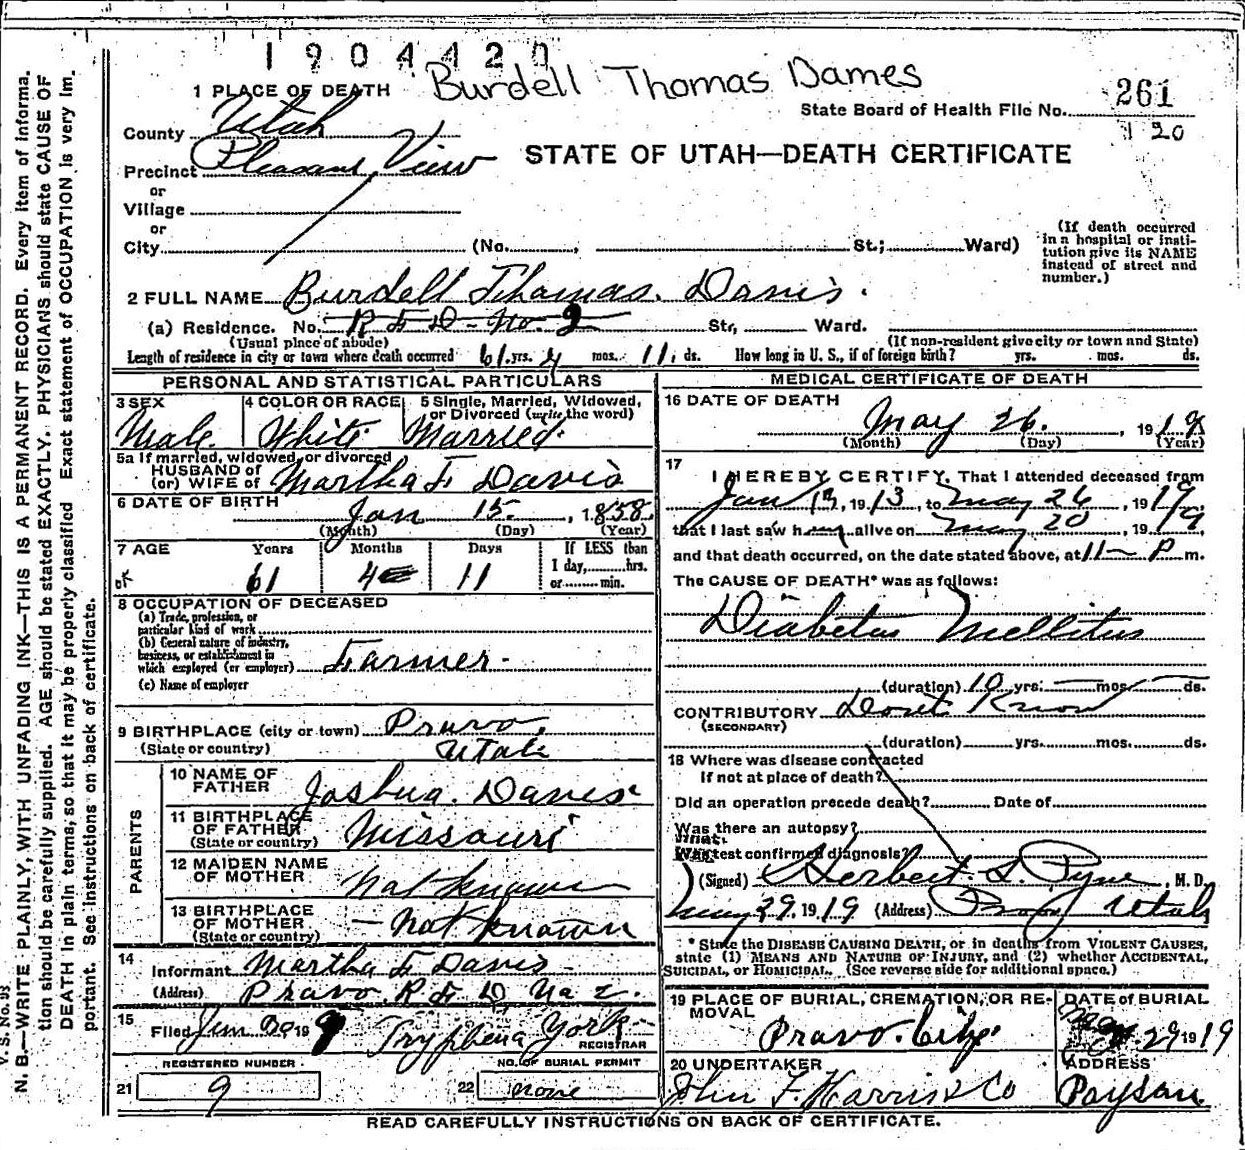 1904420
Burdell Thomas Dames
1 PLACE OF DEATH
State Board of Health File No. 261
120
County Utah
STATE OF UTAH—DEATH CERTIFICATE
Precinct Pleasant View
or
Village
or
City (No. , St.; Ward)
(If death occurred in a hospital or institution give its NAME instead of street and number.)
2 FULL NAME Burdell Thomas. Davis.
(a) Residence. No. R F D - No. 2 Str, Ward.
(Usual place of abode) (If non-resident give city or town and State)
Length of residence in city or town where death occurred 61 yrs. 4 mos. 11 ds. How long in U. S., if of foreign birth? yrs. mos. ds.
PERSONAL AND STATISTICAL PARTICULARS
3 SEX 4 COLOR OR RACE 5 Single, Married, Widowed, or Divorced (write the word)
Male. White. Married.
5a If married, widowed, or divorced
HUSBAND of
(or) WIFE of Martha F. Davis
6 DATE OF BIRTH Jan 15. , 1858.
(Month) (Day) (Year)
7 AGE Years Months Days If LESS than
61 4 11 1 day, hrs.
or min.
8 OCCUPATION OF DECEASED
(a) Trade, profession, or
particular kind of work
(b) General nature of industry,
business, or establishment in
which employed (or employer) Farmer.
(c) Name of employer
9 BIRTHPLACE (city or town) Provo,
(State or country) Utah
PARENTS
10 NAME OF
FATHER Joshua. Davis.
11 BIRTHPLACE
OF FATHER
(State or country) Missouri
12 MAIDEN NAME
OF MOTHER Not known
13 BIRTHPLACE
OF MOTHER
(State or country) Not known
14
Informant Martha F. Davis
(Address) Provo. R F D No 2.
15
Filed 19 Tryphena York
REGISTRAR
REGISTERED NUMBER NO. OF BURIAL PERMIT
21 9 22 none
MEDICAL CERTIFICATE OF DEATH
16 DATE OF DEATH
May 26. , 1919
(Month) (Day) (Year)
17
I HEREBY CERTIFY, That I attended deceased from
Jan 13, 1913, to May 26, 1919,
that I last saw h alive on May 20, 1919,
and that death occurred, on the date stated above, at 11 - P m.
The CAUSE OF DEATH* was as follows:
Diabetus Mellitus
(duration) 10 yrs. mos. ds.
CONTRIBUTORY Dont Know
(SECONDARY)
(duration) yrs. mos. ds.
18 Where was disease contracted
If not at place of death?
Did an operation precede death? Date of
Was there an autopsy?
What test confirmed diagnosis?
(Signed) Herbert S. Pyne, M. D.
May 29, 1919 (Address) Provo Utah
* State the DISEASE CAUSING DEATH, or in deaths from VIOLENT CAUSES,
state (1) MEANS AND NATURE OF INJURY, and (2) whether ACCIDENTAL,
SUICIDAL, or HOMICIDAL. (See reverse side for additional space.)
19 PLACE OF BURIAL, CREMATION, OR REMOVAL DATE of BURIAL
Provo. City. 29 1919
20 UNDERTAKER ADDRESS
John F. Harris & Co Payson.
READ CAREFULLY INSTRUCTIONS ON BACK OF CERTIFICATE.
V. S. No.
N. B.—WRITE PLAINLY, WITH UNFADING INK—THIS IS A PERMANENT RECORD. Every item of informa-
tion should be carefully supplied. AGE should be stated EXACTLY. PHYSICIANS should state CAUSE OF
DEATH in plain terms, so that it may be properly classified Exact statement of OCCUPATION is very im-
portant. See instructions on back of certificate.